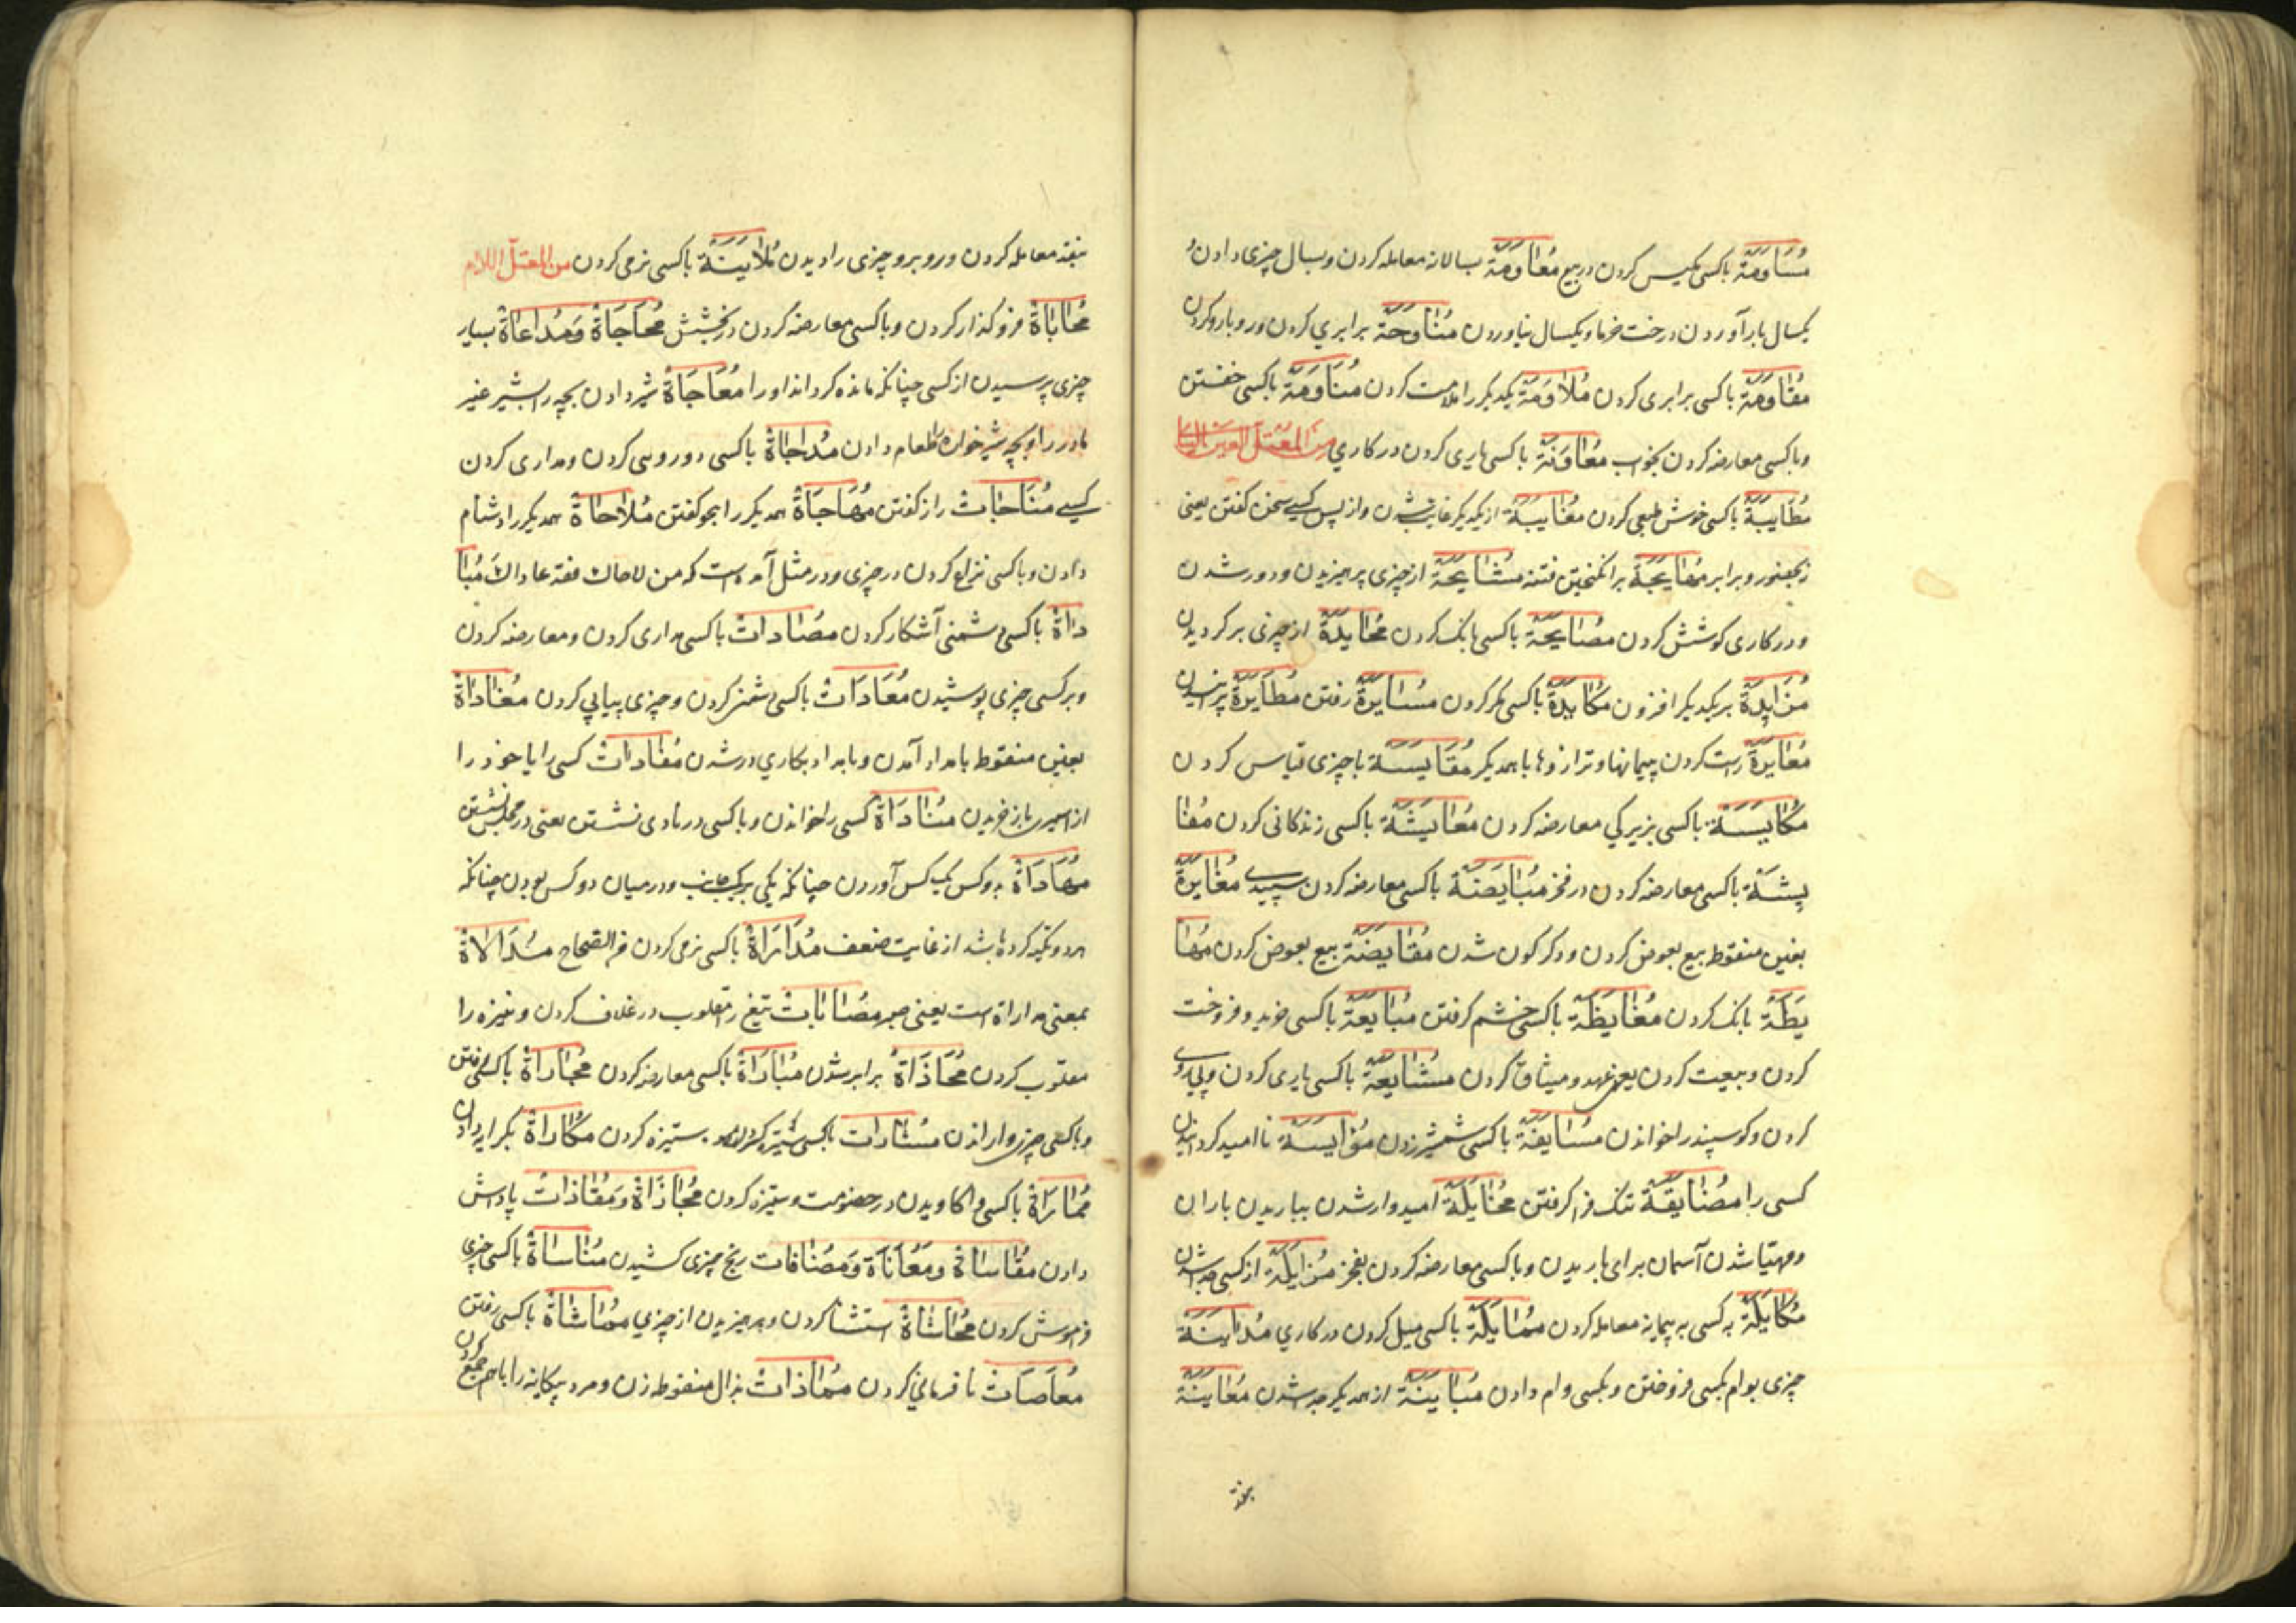 مُسَاوَمَة باکسی مکیس کردن در بیع مُعَاوَمَة بسالانه معامله کردن و بسال چیزی دادن و
یکسال بار آوردن درخت خرما و یکسال نیاوردن مُنَاوَحَة برابری کردن و روبارو کردن
مُقَاوَمَة باکسی برابری کردن مُلَاوَمَة یکدیکر را ملامت کردن مُنَاوَمَة باکسی خفتن
و باکسی معارضه کردن بخواب مُعَاوَنَة باکسی یاری کردن در کاری من المعتل العین الیائی
مُطَایَبَة باکسی خوش طبعی کردن مُغَایَبَة از یکدیکر غایب شدن و از پس کسی سخن کفتن یعنی
نه بحضور و برابر مُهَایَجَة برانکیختن فتنه مُشَایَحَة از چیزی پرهیزیدن و دور شدن
و در کاری کوشش کردن مُصَایَحَة باکسی بانک کردن مُحَایَدَة از چیزی برکردیدن
مُزَایَدَة بر یکدیکر افزون مُکَایَدَة باکسی مکر کردن مُسَایَرَة رفتن مُطَایَرَة پرانیدن
مُعَایَرَة راست کردن پیمانها و ترازوها با همدیکر مُقَایَسَة با چیزی قیاس کردن
مُکَایَسَة باکسی بزیرکی معارضه کردن مُعَایَشَة باکسی زندکانی کردن مُفَا
یَشَة باکسی معارضه کردن در فخر مُبَایَضَة باکسی معارضه کردن بسپیدی مُغَایَرَة
بغین منقوط بیع بعوض کردن و دکرکون شدن مُقَایَضَة بیع بعوض کردن مُهَا
یَطَة بانک کردن مُغَایَظَة باکسی خشم کرفتن مُبَایَعَة باکسی خرید و فروخت
کردن و بیعت کردن یعنی عهد و میثاق کردن مُشَایَعَة باکسی یاری کردن و پی‌روی
کردن و کوسپند را خواندن مُسَایَفَة باکسی شمشیر زدن مُؤَایَسَة ناامید کردانیدن
کسی را مُضَایَقَة تنک فرا کرفتن مُخَایَلَة امیدوار شدن بباریدن باران
و مهیّا شدن آسمان برای باریدن و باکسی معارضه کردن بفخر مُزَایَلَة از کسی جدا شدن
مُکَایَلَة به کسی به پیمانه معامله کردن مُمَایَلَة باکسی میل کردن در کاری مُدَایَنَة
چیزی بوام بکسی فروختن و بکسی وام دادن مُبَایَنَة از همدیکر جدا شدن مُعَایَنَة
بنقد معامله کردن و روبرو چیزی را دیدن مُلَایَنَة باکسی نرمی کردن من المعتلّ اللام
مُحَابَاة فرو کذار کردن و باکسی معارضه کردن در بخشش مُحَاجَاة وَمُدَاعَاة بسیار
چیزی پرسیدن از کسی چنانکه مانده کرداند او را مُعَاجَاة شیر دادن بچه را بشیر غیر
مادر را و بچه شیرخواره را طعام دادن مُدَاجَاة باکسی دورویی کردن و مداری کردن
کسی مُنَاجَات راز کفتن مُهَاجَاة همدیکر را هجو کفتن مُلَاحَاة همدیکر را دشنام
دادن و باکسی نزاع کردن در چیزی و در مثل آمده است که من لاحاك فقد عاداك مُبَا
دَاة باکسی دشمنی آشکار کردن مُصَادَات باکسی مداری کردن و معارضه کردن
و برکسی چیزی پوشیدن مُعَادَات باکسی دشمنی کردن و چیزی پیاپی کردن مُغَادَاة
بغین منقوط بامداد آمدن و بامداد بکاری در شدن مُفَادَات کسی را یا خود را
از اسیری باز خریدن مُنَادَاة کسی را خواندن و باکسی در نادی نشستن یعنی در مجلس نشستن
مُهَادَاة دو کس یک کس آوردن چنانکه یکی بر یک جانب و در میان دو کس بودن چنانکه
هر دو تکیه کرده باشد از غایت ضعف مُدَارَاة باکسی نرمی کردن فی الصّحاح مُدَالَاة
بمعنی مداراة است یعنی صبر مُصَابَات تیغ را مقلوب در غلاف کردن و نیزه را
مقلوب کردن مُحَاذَاة برابر شدن مُبَارَاة باکسی معارضه کردن مُجَارَاة باکسی رفتن
و باکسی چیزی وا راندن مُشَارَات باکسی ستیزه کردن مُکَارَاة بکرایه دادن
مُمَارَاة باکسی واکاویدن در خصومت و ستیزه کردن مُجَازَاة وَمُقَاذَات پاداش
دادن مُقَاسَاة وَمُعَانَاة وَمُصَافَات رنج چیزی کشیدن مُنَاسَاة باکسی چیزی
فراموش کردن مُحَاشَاة استثنا کردن و پرهیزیدن از چیزی مُمَاشَاة باکسی رفتن
مُعَاصَات نافرمانی کردن مُمَاذَات بذال منقوطه زن و مرد بیکانه را باهم جمع کردن